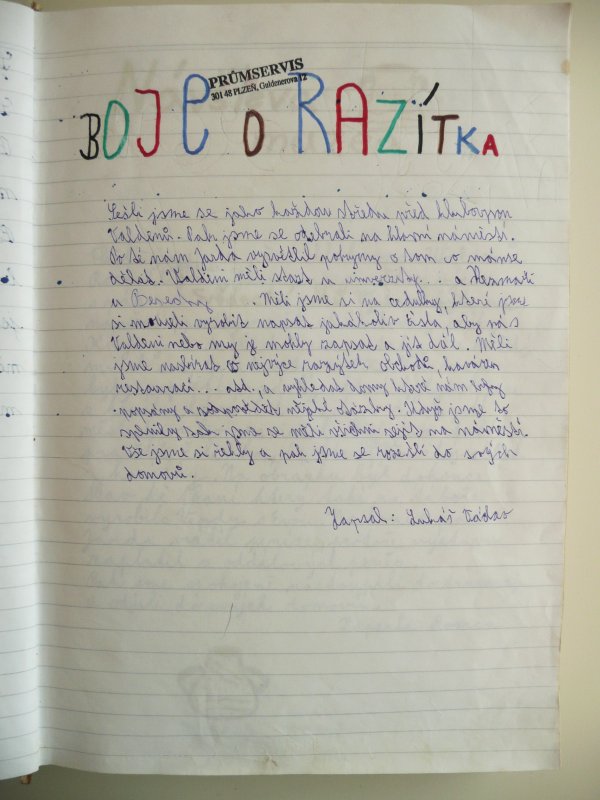 PRŮMSERVIS
301 48 PLZEŇ, Guldenerova 12
BOJE O RAZÍTKA
Sešli jsme se jako každou středu před klubovnou
Valdénů. Pak jsme se odebrali na hlavní náměstí.
Po té nám Jarda vysvětlil pokyny o tom co máme
dělat. Valdéni měli start u univerzity... a Hexmaři
u Benesky. Měli jsme si na cedulky, které jsme
si museli vyrobit napsat jakékoliv čísla, aby nás
Valdéni nebo my je mohly zapsat a jít dál. Měli
jsme nasbírat co nejvíce razítek obchodů, kaváren
restaurací... atd., a vyhledat domy které nám byly
popsány a zodpovědět nějaké otázky. Když jsme to
splnily tak jsme se měli všichni sejít na náměstí.
Vše jsme si řekly a pak jsme se rozešli do svých
domovů.
Zapsal: Lukáš